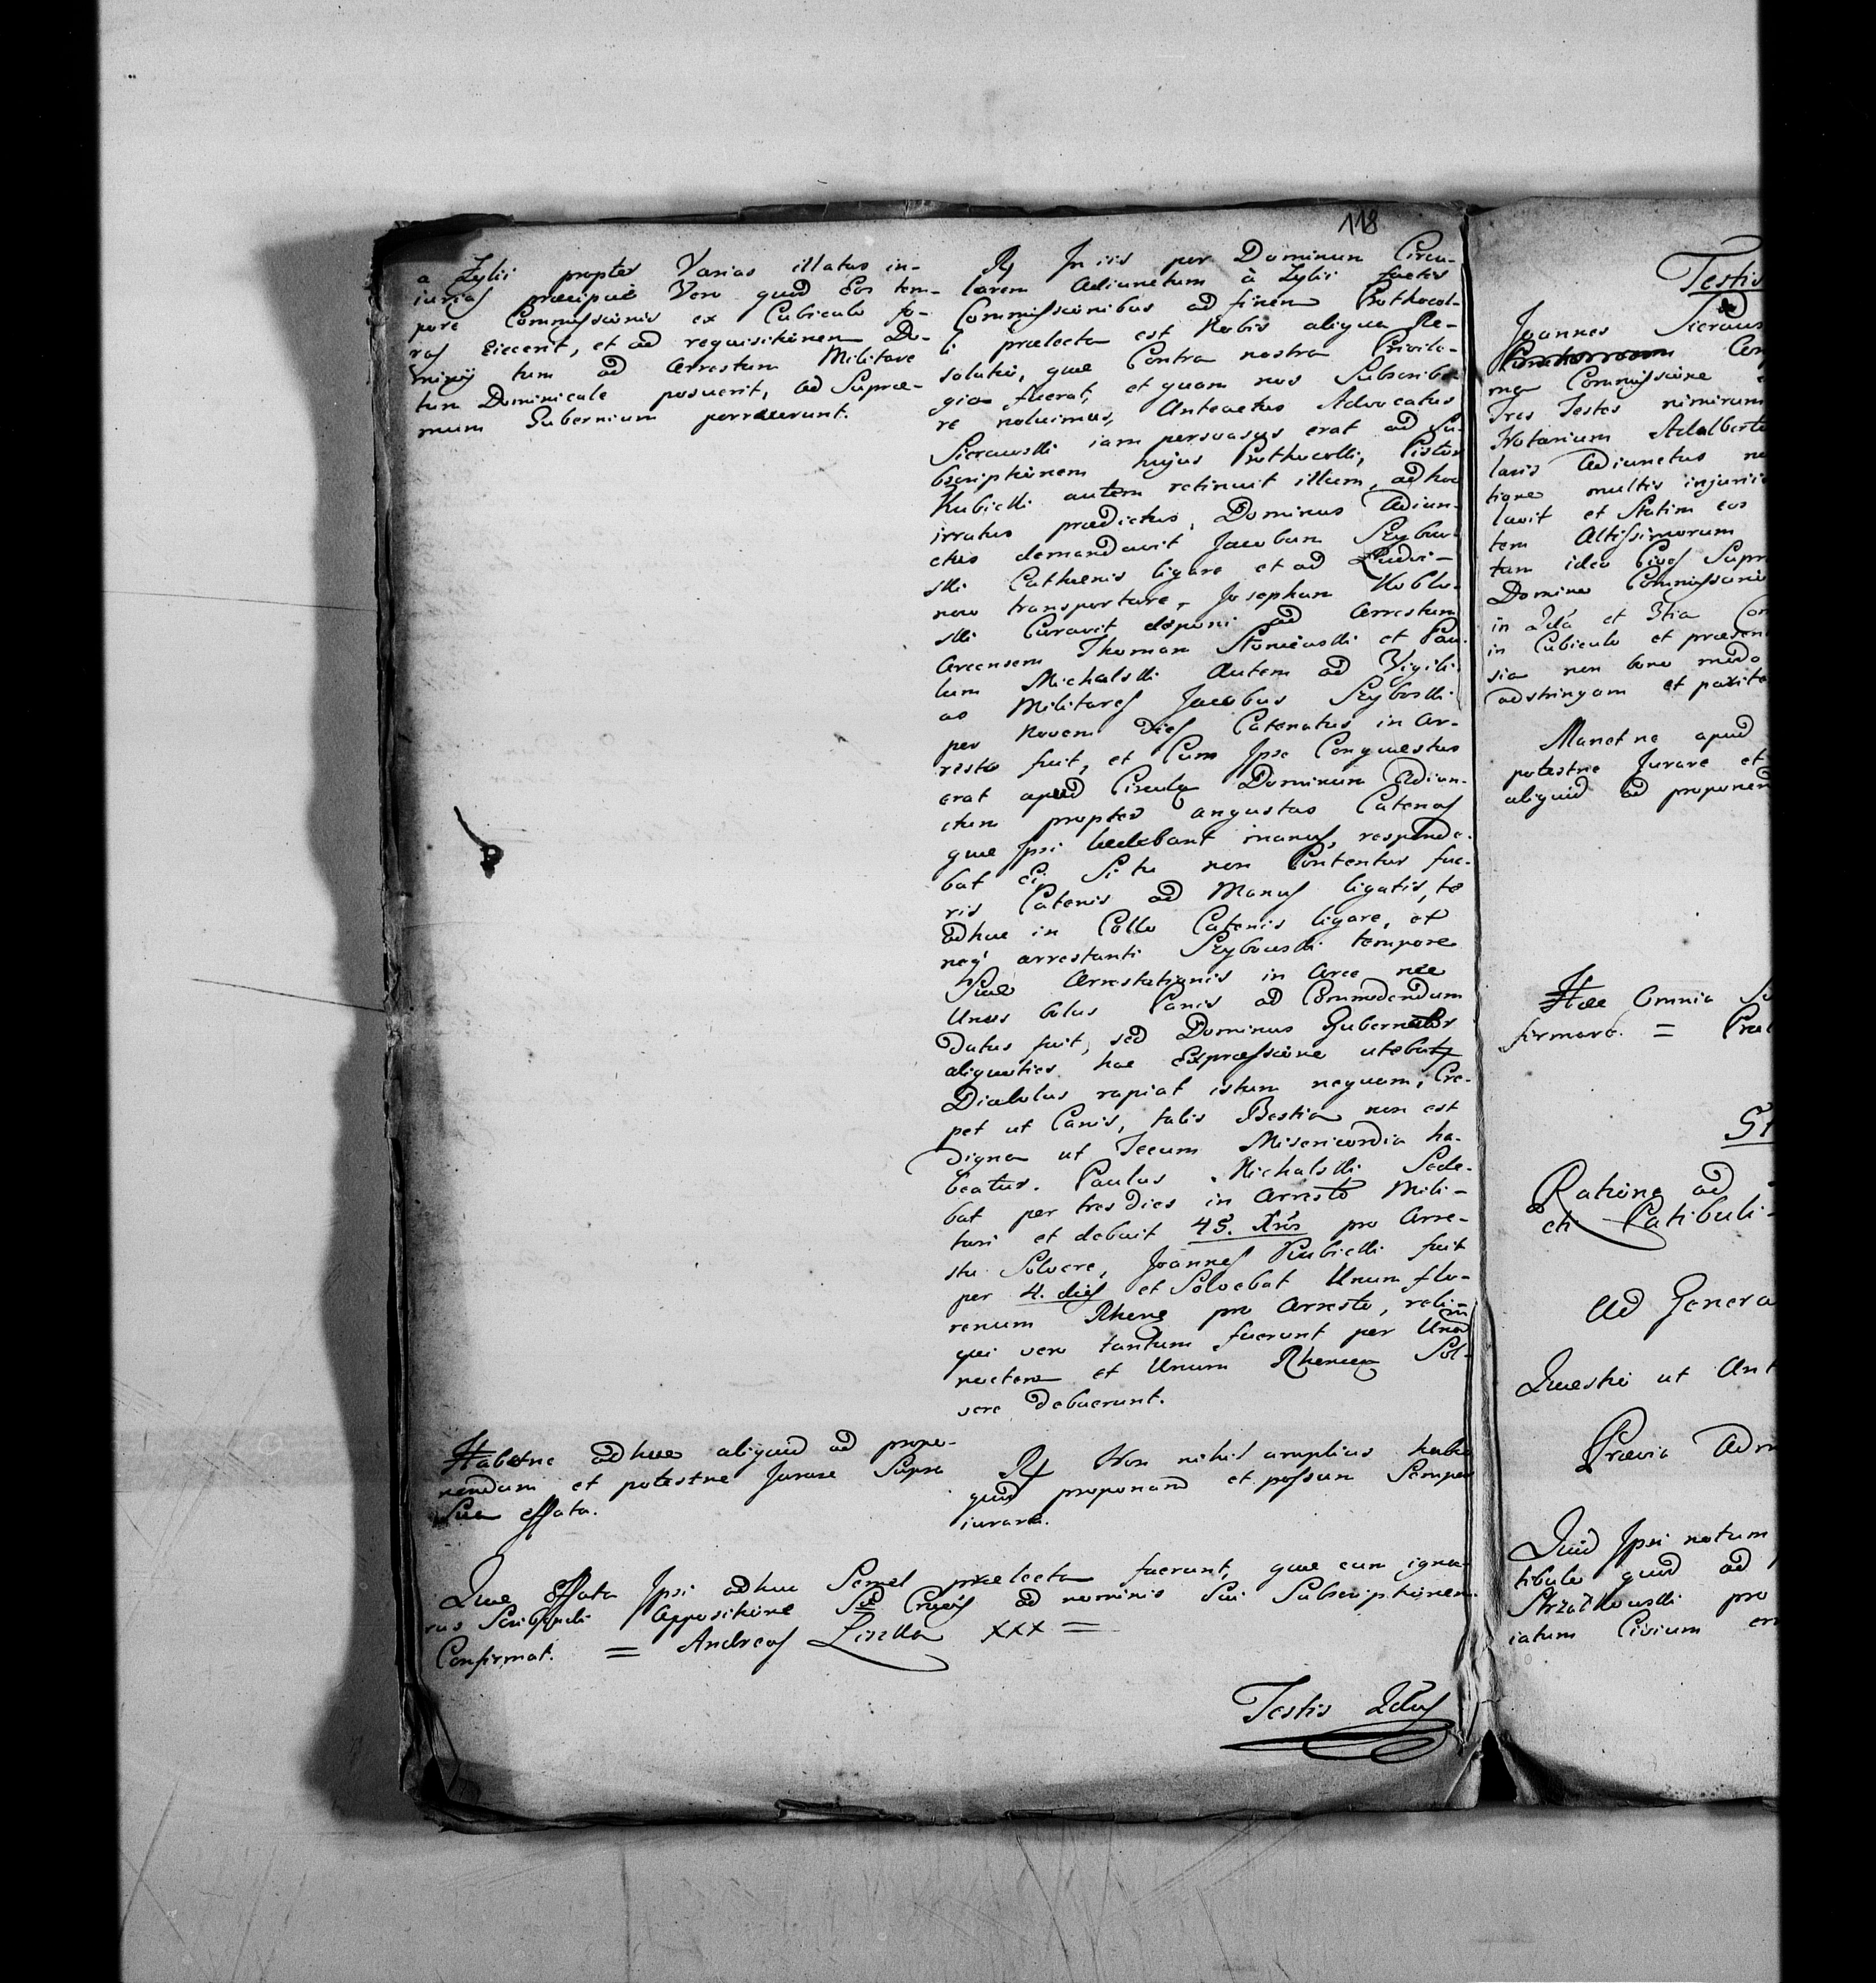 118
a Zylii propter Varias illatas in-
iurias præcipuè Vero quod Eos tem-
pore Commissionis ex Cubiculo fo-
ras Eiecerit, et ad requisitionem Do-
minij tum ad arrestum Militare
tum Dominicale posuerit, ad Supræ-
mum Gubernium porrexerunt.
Rx In iis per Dominum Circu-
larem Adiunctum à Zylii factis
Commissionibus ad finem Prothocol-
li prælecta est Nobis aliqua Re-
solutio, quæ Contra nostra Privile-
gia fuerat, et quam nos Subscribe-
re noluimus, Anteactus Advocatus
Sierawski iam persvasus erat ad Su-
bscriptionem hujus Prothocolli, Pistor
Kubicki autem retinuit illum, ad hoc
irratus prædictus, Dominus Adiun-
ctus demandavit Jacobum Szybow-
ski Cathenis ligare et ad
transportare, Josephum
ski Curavit deponi ad Arrestum
Arcensem Thomam et Pau-
lum Michalski Autem ad Vigili-
as Militares Jacobus Szyboski
per Novem Dies Catenatus in Ar-
resto fuit, et Cum Ipse Conquestus
erat apud Circula Dominum Adiun-
ctum propter angustas Catenas
quæ Ipsi lædebant manus, responde-
bat Ei Si tu non Contentus fue-
ris Catenis ad Manus ligatis, te
adhuc in Collo Catenis ligare, et
neq arrestanti Szybowski tempore
Suæ Arrestationis in Arce nec
Unus bolus Panis ad Commedendum
datus fuit, sed Dominus Gubernator
aliquoties hac Expressione utebatur
Diabolus rapiat istum nequam, Cre-
pet ut Canis, talis Bestia non est
digna ut Tecum Misericordia ha-
beatur. Paulus Michalski Sede-
bat per tres dies in Arresto Mili-
tari et debuit 45. Xros pro Arre-
sto Solvere, Joannes Kubicki fuit
per 4. dies et Solvebat Unum flo-
renum Rhens pro Arresto, reliqui
qui vero tantum fuerunt per Unam
noctem et Unum Rhenens Sol-
vere debuerunt.
Habetne adhuc aliquid ad propo-
nendum et potestne Jurare Supra
Sua effata.
Rx Non nihil amplius habeo
quid proponam et possum Semper
iurare.
Quæ Effata Ipsi adhuc Semel prælecta fuerunt, quæ cum igna-
rus Scribendi Appositione Sæ Crucis ad nominis Sui Subscriptionem
Confirmat. = Andreas Lizella xxx =
Testis 2dus
Testis
Joannes Sieraws
Con
ma Commissione
Tres Testes nimirum
Notarium Adalberto
laris Adiunctus
tione multis injuriis
lavit et Statim eos
tem Altissimorum
tum ideo Cives Supr
Domino Commissario
in 2da et 3tia Com
in Cubiculo et præsen
sia non bono modo
adstringam et pariter
Manetne apud
potestne Jurare et
aliquid ad proponen
Hæc Omnia
firmare. = Præ
Ratione ad
cti Patibuli
Ad Genera
Quæstio ut Ant
Prævia Adm
Quid Ipsi notum
tibulo quod ad
Strzałkowski pro
iatum Civium